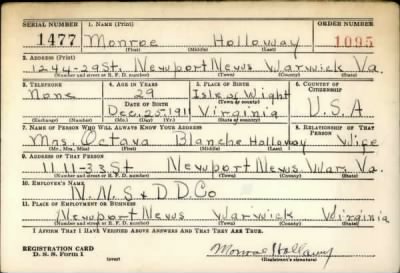 SERIAL NUMBER 1. NAME (Print) ORDER NUMBER
1477 Monroe Holloway 1095
(First) (Middle) (Last)
2. ADDRESS (Print)
1244-29 St. Newport News Warwick Va.
(Number and street or R. F. D. number) (Town) (County) (State)
3. TELEPHONE 4. AGE IN YEARS 5. PLACE OF BIRTH 6. COUNTRY OF CITIZENSHIP
None 29 Isle of Wight
DATE OF BIRTH (Town or county)
Dec. 25 1911 Virginia U.S.A
(Exchange) (No.) (Mo.) (Day) (Yr.) (State or country)
7. NAME OF PERSON WHO WILL ALWAYS KNOW YOUR ADDRESS 8. RELATIONSHIP OF THAT PERSON
Mrs. Octava Blanche Holloway Wife
(Mr., Mrs., Miss) (First) (Middle) (Last)
9. ADDRESS OF THAT PERSON
1141-33 St Newport News War. Va.
(Number and street or R. F. D. number) (Town) (County) (State)
10. EMPLOYER'S NAME
N.N.S & D D. Co
11. PLACE OF EMPLOYMENT OR BUSINESS
Newport News Warwick Virginia
(Number and street or R. F. D. number) (Town) (County) (State)
I AFFIRM THAT I HAVE VERIFIED ABOVE ANSWERS AND THAT THEY ARE TRUE.
REGISTRATION CARD
D. S. S. Form 1 (over) Monroe Holloway
(Registrant's signature)